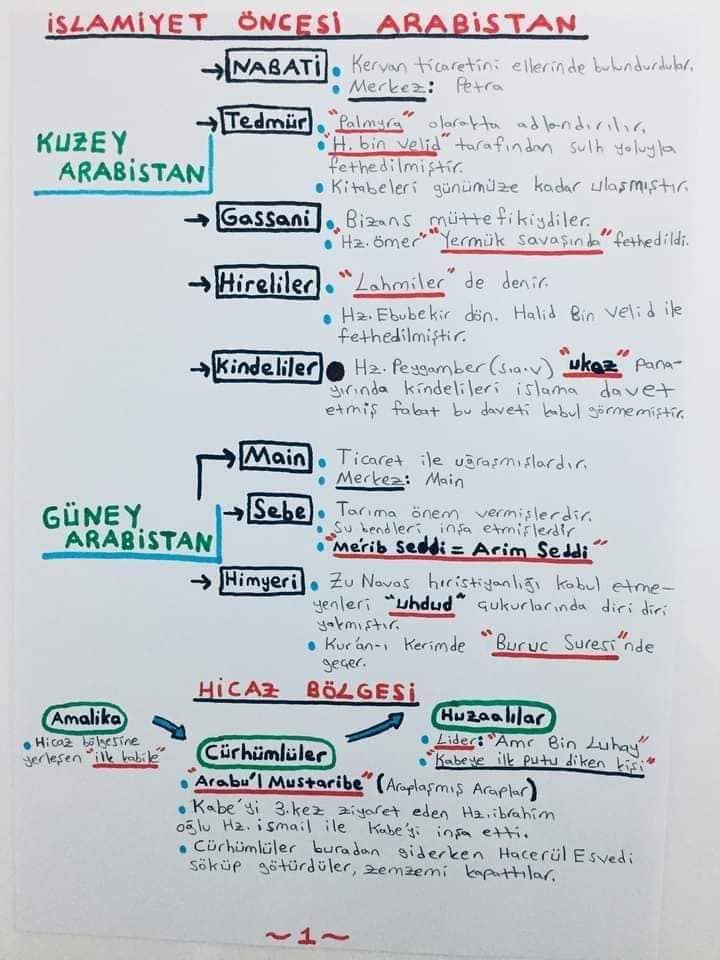 İSLAMİYET ÖNCESİ ARABİSTAN
KUZEY
ARABİSTAN
NABATİ
Kervan ticaretini ellerinde bulundurdular.
Merkez: Petra
Tedmür
"Palmyra" olarakta adlandırılır.
"H. bin Velid" tarafından sulh yoluyla
fethedilmiştir.
Kitabeleri günümüze kadar ulaşmıştır.
Gassani
Bizans müttefikiydiler.
"Hz. ömer" "Yermük savaşında" fethedildi.
Hireliler
"Lahmiler" de denir.
Hz. Ebubekir dön. Halid Bin Velid ile
fethedilmiştir.
Kindeliler
Hz. Peygamber (s.a.v) "ukaz" pana-
yırında kindelileri islama davet
etmiş fakat bu daveti kabul görmemiştir.
GÜNEY
ARABİSTAN
Main
Ticaret ile uğraşmışlardır.
Merkez: Main
Sebe
Tarıma önem vermişlerdir.
Su bendleri inşa etmişlerdir
"Me'rib Seddi = Arim Seddi"
Himyeri
Zu Navas hıristiyanlığı kabul etme-
yenleri "uhdud" çukurlarında diri diri
yakmıştır.
Kur'an-ı Kerimde "Buruc Suresi"nde
geçer.
HİCAZ BÖLGESİ
Amalika
Hicaz bölgesine
yerleşen "ilk kabile"
Cürhümlüler
"Arabu'l Mustaribe" (Araplaşmış Araplar)
Kabe'yi 3. kez ziyaret eden Hz. ibrahim
oğlu Hz. ismail ile Kabe'yi inşa etti.
Cürhümlüler buradan giderken Hacerül Esvedi
söküp götürdüler, zemzemi kapattılar.
Huzaalılar
Lider: "Amr Bin Luhay"
"Kabeye ilk putu diken kişi"
~1~